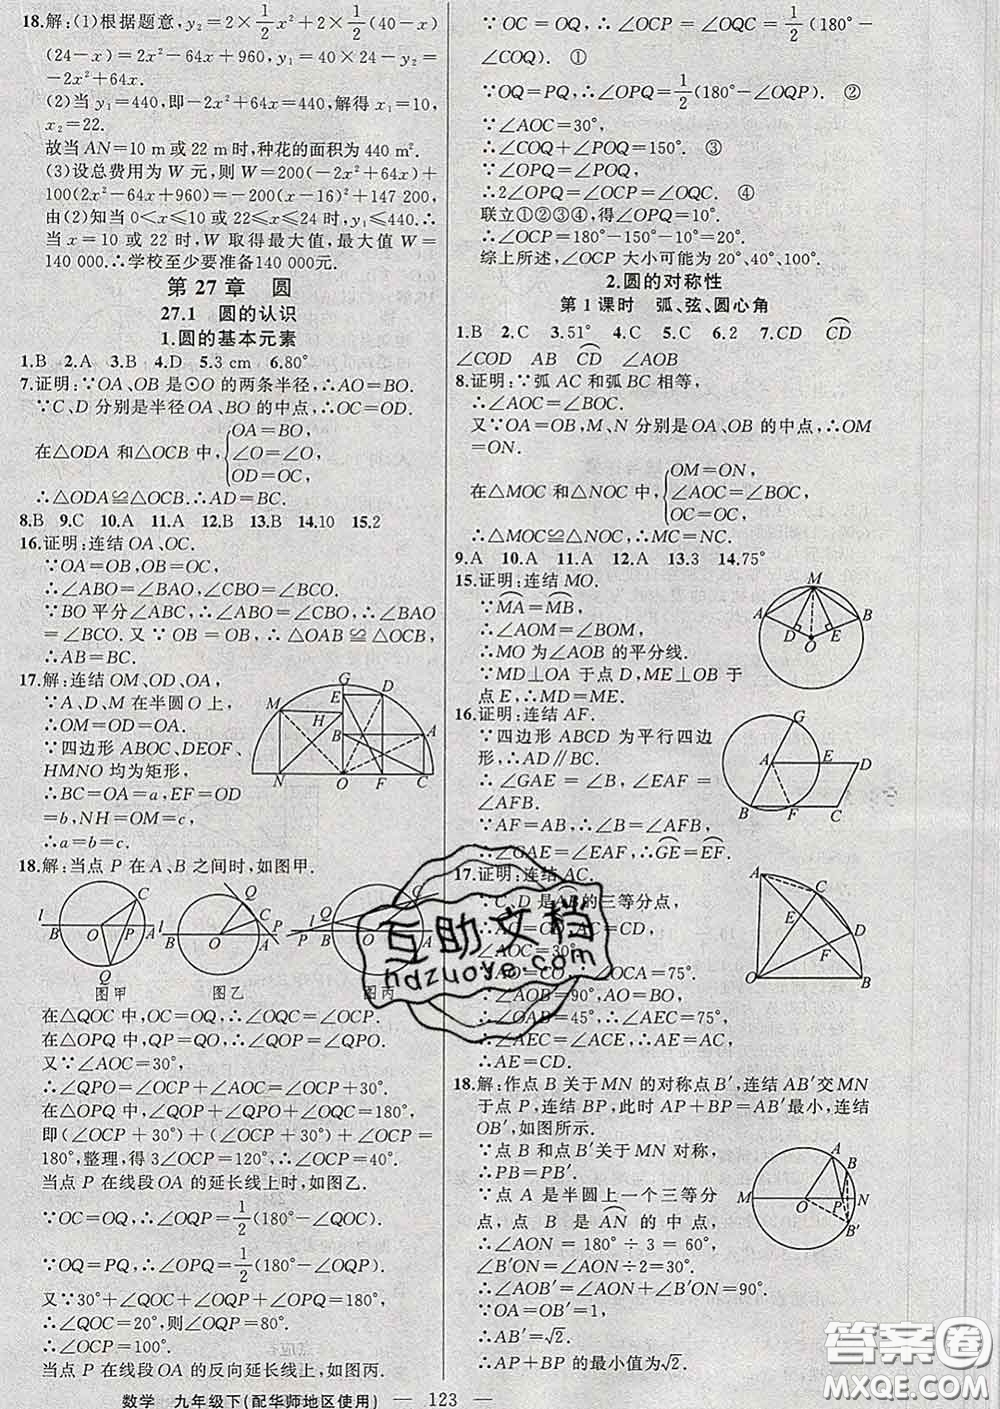 18.解:(1)根据题意,y₂=2×1/2x²+2×1/2(40-x)
(24-x)=2x²-64x+960,y₁=40×24-y₂=
-2x²+64x.
(2)当y₁=440,即-2x²+64x=440,解得x₁=10,
x₂=22.
故当AN=10 m或22 m时,种花的面积为440 m².
(3)设总费用为W元,则W=200(-2x²+64x)+
100(2x²-64x+960)=-200(x-16)²+147 200,
由(2)知当0<x≤10或22≤x≤24时,y₁≤440.∴
当x=10或22时,W取得最大值,最大值W=
140 000.∴学校至少要准备140 000元.
第27章 圆
27.1 圆的认识
1.圆的基本元素
1.B 2.A 3.B 4.D 5.3 cm 6.80°
7.证明:∵OA、OB是⊙O的两条半径,∴AO=BO.
∵C、D分别是半径OA、BO的中点,∴OC=OD.
在△ODA和△OCB中,{OA=BO,
∠O=∠O,
OD=OC,
∴△ODA≌△OCB.∴AD=BC.
8.B 9.C 10.A 11.A 12.B 13.B 14.10 15.2
16.证明:连结OA、OC.
∵OA=OB,OB=OC,
∴∠ABO=∠BAO,∠CBO=∠BCO.
∵BO平分∠ABC,∴∠ABO=∠CBO,∴∠BAO
=∠BCO.又∵OB=OB,∴△OAB≌△OCB,
∴AB=BC.
17.解:连结OM、OD、OA,
∵A、D、M在半圆O上,
∴OM=OD=OA.
∵四边形ABOC、DEOF、
HMNO均为矩形,
∴BC=OA=a,EF=OD
=b,NH=OM=c,
∴a=b=c.
G
E D
M H
B A
N O F C
18.解:当点P在A、B之间时,如图甲.
C l B O P A Q
图甲
Q C l B O A P
图乙
Q C P B O A
图丙
在△QOC中,OC=OQ,∴∠OQC=∠OCP.
在△OPQ中,QP=QO,∴∠QOP=∠QPO.
又∵∠AOC=30°,
∴∠QPO=∠OCP+∠AOC=∠OCP+30°.
在△OPQ中,∠QOP+∠QPO+∠OQC=180°,
即(∠OCP+30°)+(∠OCP+30°)+∠OCP=
180°,整理,得3∠OCP=120°,∴∠OCP=40°.
当点P在线段OA的延长线上时,如图乙.
∵OC=OQ,∴∠OQP=1/2(180°-∠QOC).
∵OQ=PQ,∴∠OPQ=1/2(180°-∠OQP).
又∵30°+∠QOC+∠OQP+∠OPQ=180°,
∴∠QOC=20°,则∠OQP=80°.
∴∠OCP=100°.
当点P在线段OA的反向延长线上时,如图丙.
数学 九年级下(配华师地区使用) — 123 —
∵OC=OQ,∴∠OCP=∠OQC=1/2(180°-
∠COQ). ①
∵OQ=PQ,∴∠OPQ=1/2(180°-∠OQP). ②
∵∠AOC=30°,
∴∠COQ+∠POQ=150°. ③
∵∠OPQ=∠POQ,
∴2∠OPQ=∠OCP=∠OQC. ④
联立①②③④,得∠OPQ=10°.
∴∠OCP=180°-150°-10°=20°.
综上所述,∠OCP大小可能为20°、40°、100°.
2.圆的对称性
第1课时 弧、弦、圆心角
1.B 2.C 3.51° 4.C 5.C 6.2 7.CD CD
∠COD AB CD ∠AOB
8.证明:∵弧AC和弧BC相等,
∴∠AOC=∠BOC.
又∵OA=OB,M、N分别是OA、OB的中点,∴OM
=ON.
在△MOC和△NOC中,{OM=ON,
∠AOC=∠BOC,
OC=OC,
∴△MOC≌△NOC,∴MC=NC.
9.A 10.A 11.A 12.A 13.3 14.75°
15.证明:连结MO.
∵MA=MB,
∴∠AOM=∠BOM,
∴MO为∠AOB的平分线.
∵MD⊥OA于点D,ME⊥OB于
点E,∴MD=ME.
M A B D E O
16.证明:连结AF.
∵四边形ABCD为平行四边
形,∴AD∥BC.
∴∠GAE=∠B,∠EAF=
∠AFB.
∵AF=AB,∴∠AFB=∠B,
∴∠GAE=∠EAF,∴GE=EF.
G A E D B F C
17.证明:连结AC.
∵C、D是AB的三等分点,
AC=CD,
∠AOC=30°
=CO, ∠OCA=75°.
∵∠AOB=90°,AO=BO,
∴∠OAB=45°,∴∠AEC=75°,
∴∠AEC=∠ACE,∴AC=AE,
∴AE=CD.
A C E D F O B
18.解:作点B关于MN的对称点B′,连结AB′交MN
于点P,连结BP,此时AP+BP=AB′最小,连结
OB′,如图所示.
∵点B和点B′关于MN对称,
∴PB=PB′.
∵点A是半圆上一个三等分
点,点B是AN的中点,
∴∠AON=180°÷3=60°,
∠B′ON=∠AON÷2=30°.
∴∠AOB′=∠AON+∠B′ON=90°.
∵OA=OB′=1,
∴AB′=√2.
∴AP+BP的最小值为√2.
A B M O P N B′
互助文档
hdzuoye.com
答案圈
MXQE.COM